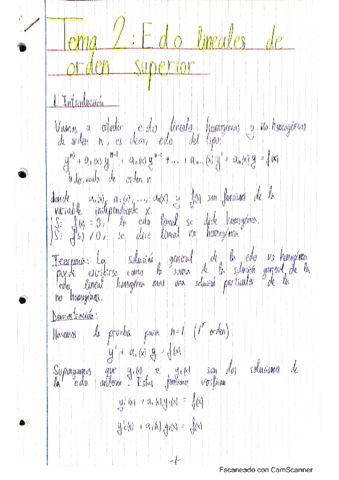 Tema 2: Edo lineales de
orden superior
1. Introducción
Vamos a estudir edos lineales homogéneas y no homogéneas
de orden n, es decir, edo del tipo:
y^(n) + a₁(x) y^(n-1) + a₂(x) y^(n-2) + ... + aₙ₋₁(x) y' + aₙ(x) y = f(x)
derivada de orden n
donde a₁(x), a₂(x), ..., aₙ(x) y f(x) son funciones de la
variable independiente x.
Si f(x) = 0, la edo lineal se dice homogénea.
Si f(x) ≠ 0, se dice lineal no homogénea.
Teorema: La solución general de la edo no homogénea
puede escribirse como la suma de la solución general de la
edo lineal homogénea más una solución particular de la
no homogénea.
Demostración:
Hacemos la prueba para n=1 (1er orden)
y' + a₁(x) y = f(x)
Supongamos que y₁(x) e y₂(x) son dos soluciones de
la edo anterior. Estas funciones verifican
y₁'(x) + a₁(x) y₁(x) = f(x)
y₂'(x) + a₁(x) y₂(x) = f(x)
-1-
Escaneado con CamScanner